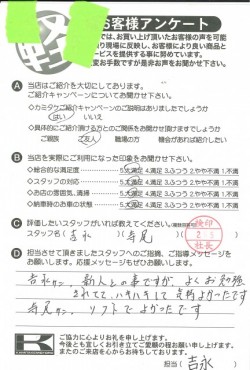 お客様アンケート
では、お買い上げ頂いたお客様の声を可能
り現場に反映し、お客様により良い商品と
ービスを提供する事に努めています。
変お手数ですが是非お声をお聞かせ下さい。
A 当店はご紹介を大切にしております。
ご紹介キャンペーンについてお聞かせ下さい。
・カミタケご紹介キャンペーンのご説明はありましたでしょうか
はい いいえ
・具体的にご紹介頂ける方とのご関係をお聞かせ頂けますでしょうか
ご親族 ご友人 職場の方 機会があれば紹介したい
B 当店を実際にご利用になった印象をお聞かせ下さい。
・総合的な満足度 5.大満足 4.満足 3.ふつう 2.やや不満 1.不満
・スタッフの対応 5.大満足 4.満足 3.ふつう 2.やや不満 1.不満
・お店の雰囲気、清掃 5.大満足 4.満足 3.ふつう 2.やや不満 1.不満
・納車時のお車の状態 5.大満足 4.満足 3.ふつう 2.やや不満 1.不満
C 評価したいスタッフがいれば教えてください。
スタッフ名 ( 吉永 ) ( 寺尾 )
検印
社長
D 担当させて頂きましたスタッフへのご指摘、ご指導メッセージを
お願いします。応援メッセージもぜひお願いします。
吉永サン、新人との事ですが、よくお勉強
されてて、ハキハキして気持よかったです
寺尾サン、ソフトでよかったです
K
ご協力に心よりお礼を申し上げます。
今後とも宜しくお引き立てご愛顧の程お願い申し上げます。
またのご来店を心からお待ちしております。
担当 吉永